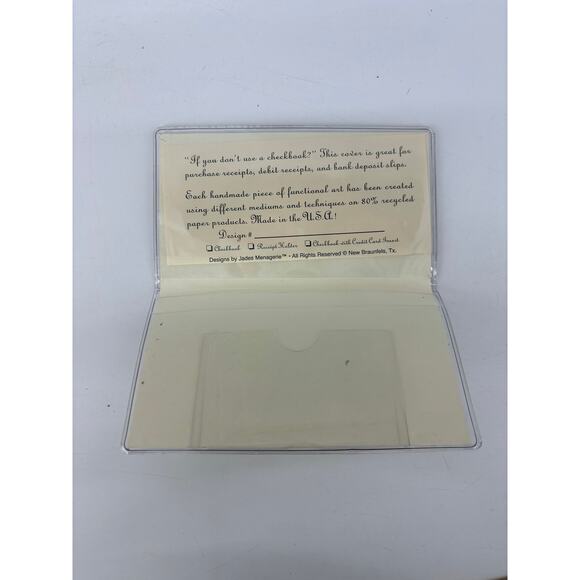 "If you don't use a checkbook?" This cover is great for
purchase receipts, debit receipts, and bank deposit slips.
Each handmade piece of functional art has been created
using different mediums and techniques on 80% recycled
paper products. Made in the U.S.A.!
Design #
Checkbook Receipt Holder Checkbook with Credit Card Insert
Designs by Jades Menagerie™ - All Rights Reserved © New Braunfels, Tx.